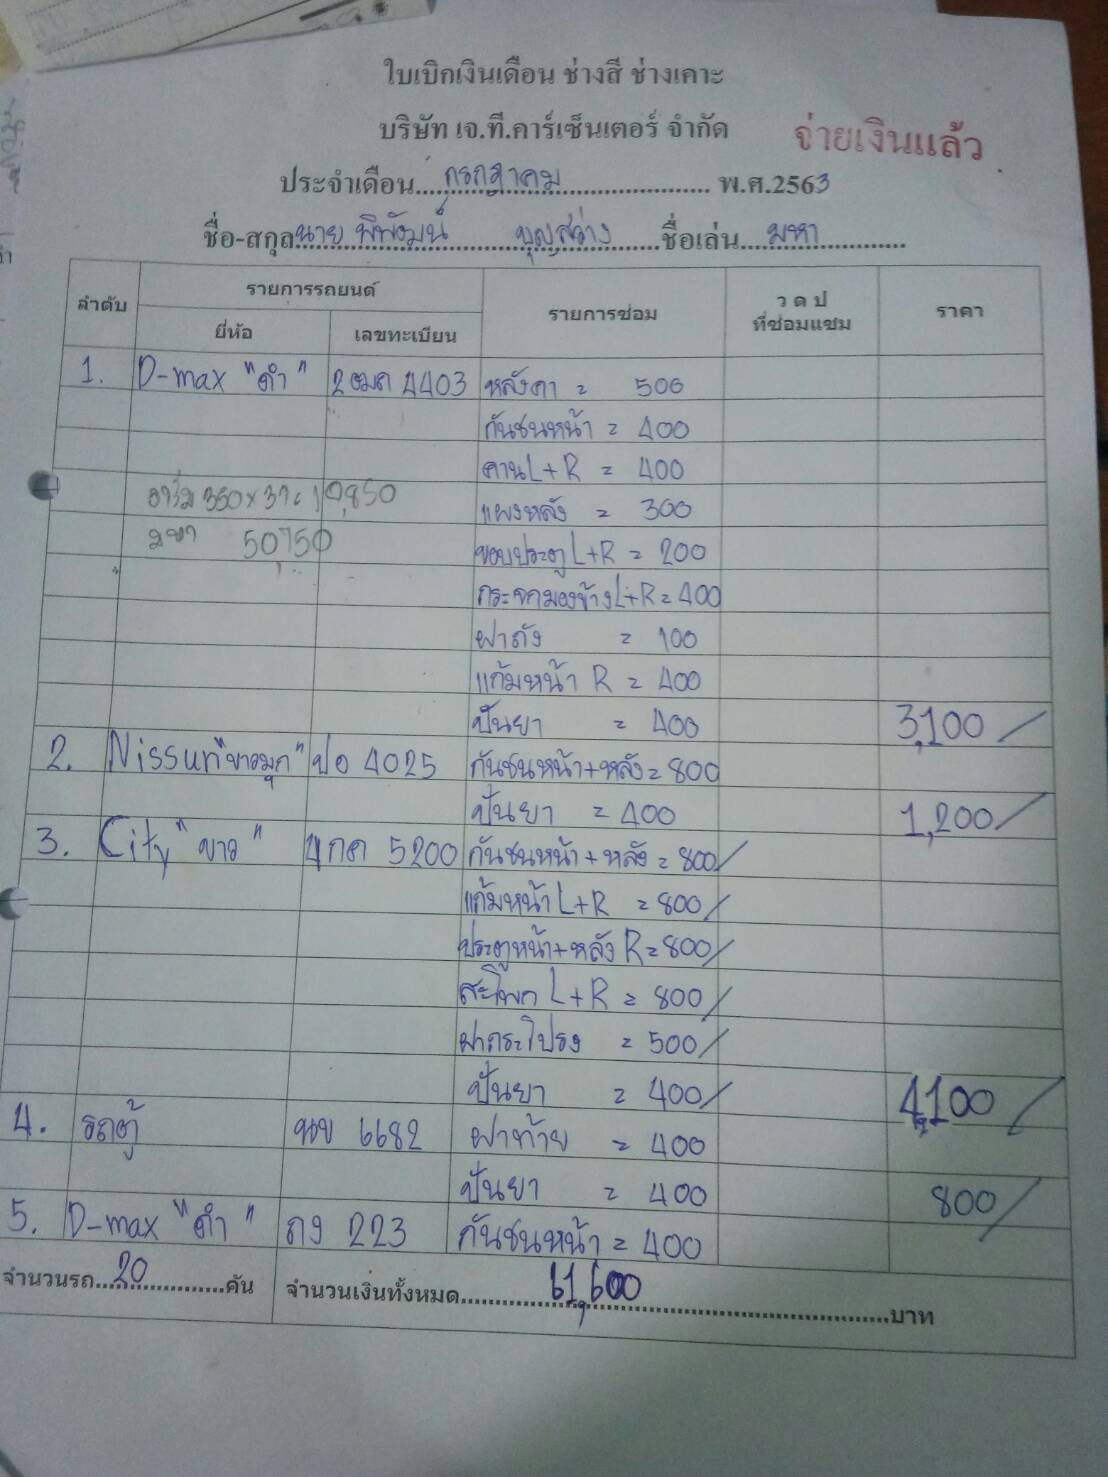 ใบเบิกเงินเดือน ช่างสี ช่างเคาะ
บริษัท เจ.ที.คาร์เซ็นเตอร์ จำกัด
จ่ายเงินแล้ว
ประจำเดือน....กรกฎาคม.... พ.ศ.2563
ชื่อ-สกุล นาย พิพัฒน์ บุญสว่าง ชื่อเล่น.... มหา....
ลำดับ รายการรถยนต์ รายการซ่อม ว ด ป ที่ซ่อมแซม ราคา
ยี่ห้อ เลขทะเบียน
1. D-max "ดำ" 2ฒฅ 4403 หลังคา = 500
กันชนหน้า = 400
คานL+R = 400
350x31=10,850 แผงหลัง = 300
มหา 50,750 ขอบประตูL+R = 200
กระจกมองข้างL+R=400
ฝาถัง = 100
แก้มหน้า R = 400
ปั่นยา = 400 3,100/
2. Nissun"ขาวมุก" ปอ 4025 กันชนหน้า+หลัง=800
ปั่นยา = 400 1,200/
3. City "ขาว" 4กค 5200 กันชนหน้า+หลัง=800/
แก้มหน้า L+R =800/
ประตูหน้า+หลัง R=800/
สะโพก L+R = 800/
ฝากระโปรง = 500/
ปั่นยา = 400/ 4,100/
4. รถตู้ นข 6682 ฝาท้าย = 400
ปั่นยา = 400 800/
5. D-max "ดำ" ถง 223 กันชนหน้า = 400
จำนวนรถ....20....คัน จำนวนเงินทั้งหมด....61,600....บาท